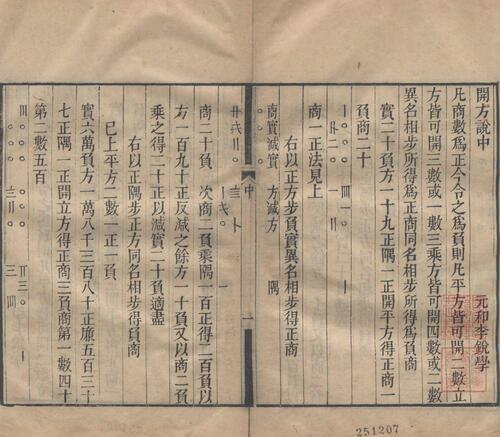 開方說中
元和李銳學
凡商數爲正今令之爲負則凡平方皆可開二數立
方皆可開三數或一數三乘方皆可開四數或二數
異名相步所得爲正商同名相步所得爲負商
實二十負方一十九正隅一正開平方得正商一
負商二十
商一正法見上
右以正方步負實異名相步得正商
商實減實 方減方 隅
中
一
商二十負 次商二負乘隅一百正得二百負以
方一百九十正反減之餘方一十負又以商二負
乘之得二十正以減實二十負適盡
右以正隅步正方同名相步得負商
已上平方二數一正一負
實六萬負方一萬八千三百八十正廉五百三十
七正隅一正開立方得正商三負商第一數四十
第二數五百
251207